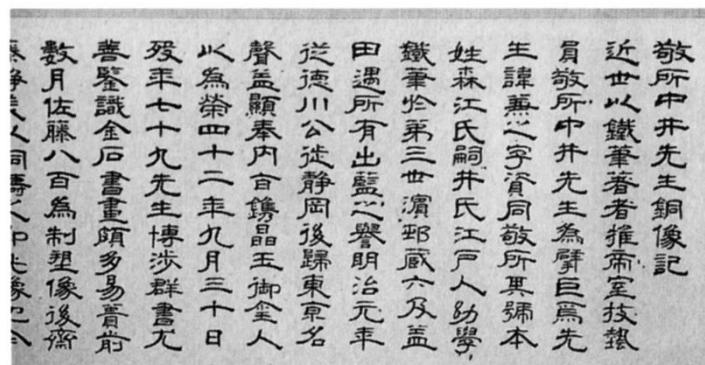 敬所中井先生銅像記
近世以鐵筆著者推帝室技藝
員敬所中井先生為擘巨焉先
生諱兼之字資同敬所其號本
姓森江氏嗣井氏江戶人幼學
鐵筆於弟三世濱邨蔵六及益
田遇所有出藍之譽明治元年
従徳川公徙静岡後歸東京名
聲益顯奉內旨鐫晶玉御璽人
以為榮四十二年九月三十日
歿年七十九先生博渉群書尤
善鑒識金石書畫頗多易簀前
數月佐藤八百為制塑像後齋